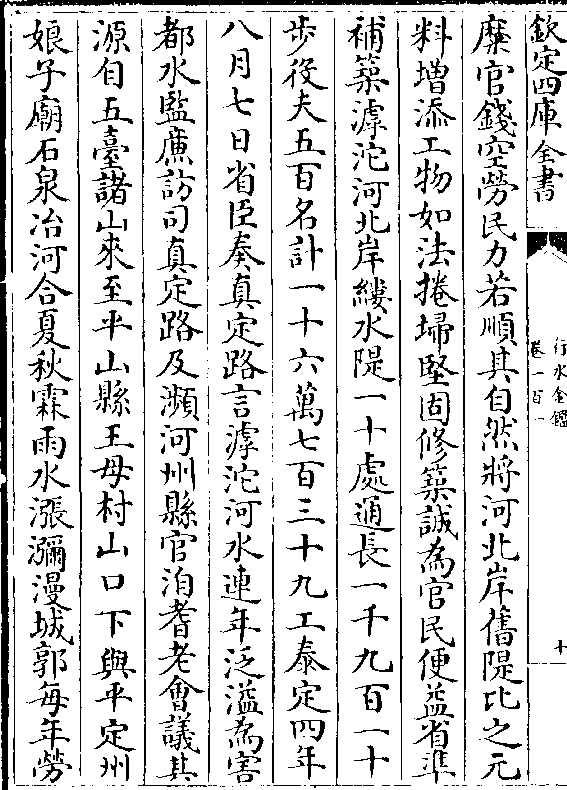 欽定四庫全書
行水金鑑
卷一百一
十
糜官錢空勞民力若順其自然將河北岸舊隄比之元
料增添工物如法捲埽堅固修築誠為官民便益省準
補築滹沱河北岸縷水隄一十處通長一千九百一十
步役夫五百名計一十六萬七百三十九工泰定四年
八月七日省臣奏真定路言滹沱河水連年泛溢為害
都水監廉訪司真定路及瀕河州縣官洎耆老會議其
源自五臺諸山來至平山縣王母村山口下與平定州
娘子廟石泉冶河合夏秋霖雨水漲瀰漫城郭每年勞